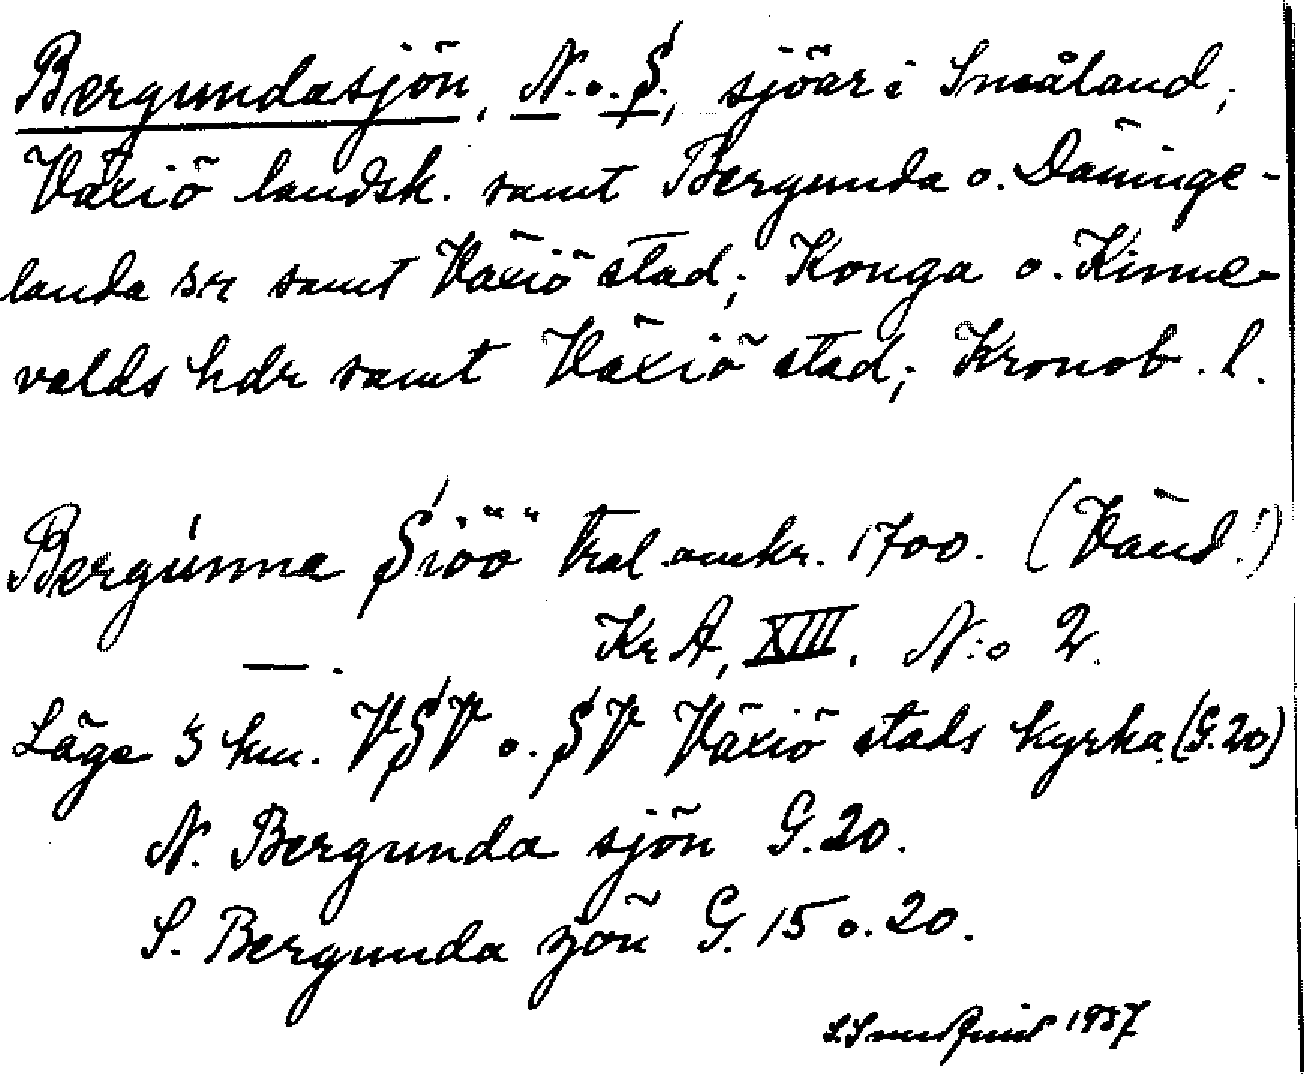 Bergundasjön, N. o. S., sjöar i Småland,
Växiö landsk. samt Bergunda o. Däninge-
landa snr samt Växiö stad; Konga o. Kinne-
valds hdr samt Växiö stad; Kronob. l.
Bergúnna Siöö Tral omkr. 1700. (Vänd!)
— . KrA, XIII. N:o 2.
Läge 3 km. VSV o. SV Växiö stads kyrka (G.20)
N. Bergunda sjön G.20.
S. Bergunda sjön G. 15 o. 20.
1937